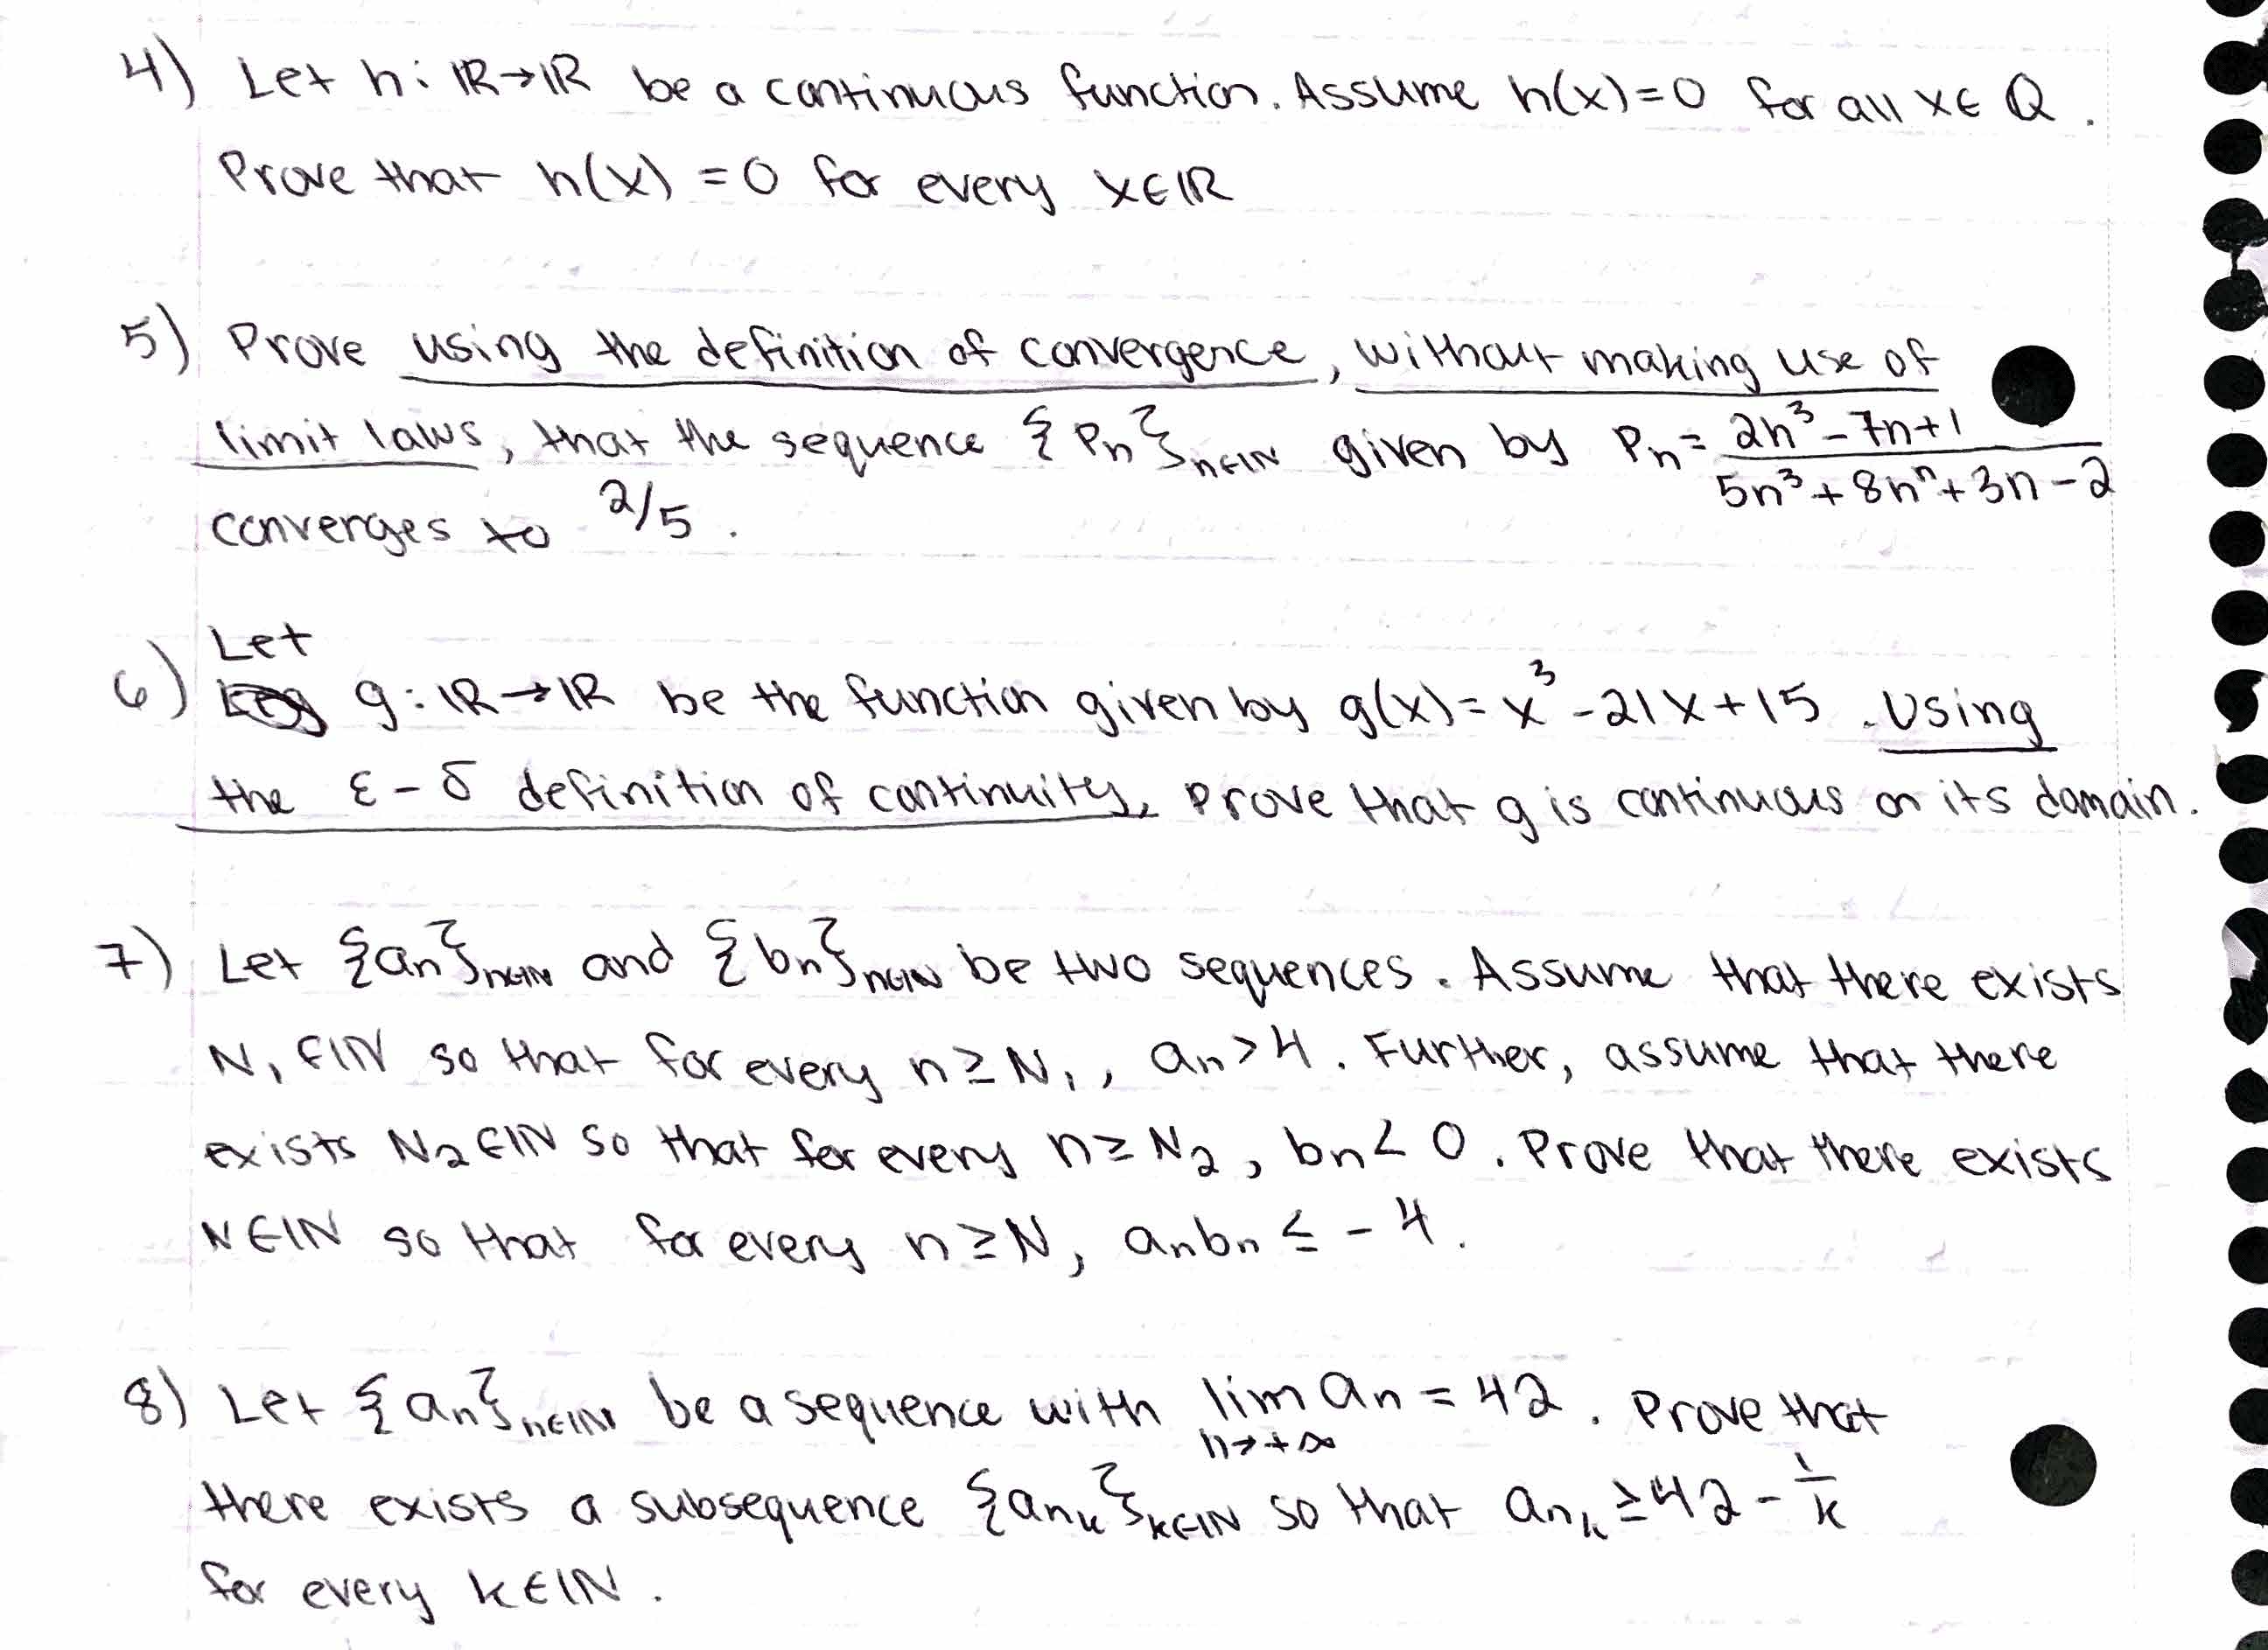 4) Let h: ℝ→ℝ be a continuous function. Assume h(x)=0 for all x∈ Q.
Prove that h(x) = 0 for every x∈ℝ
5) Prove using the definition of convergence, without making use of
limit laws, that the sequence {Pn}n∈ℕ given by Pn = (2n³-7n+1)/(5n³+8nⁿ+3n-2)
converges to 2/5.
6) Let g: ℝ→ℝ be the function given by g(x)= x³-21x+15. Using
the ε-δ definition of continuity, prove that g is continuous on its domain.
7) Let {an}n∈ℕ and {bn}n∈ℕ be two sequences. Assume that there exists
N₁ ∈ℕ so that for every n≥N₁, an>4. Further, assume that there
exists N₂∈ℕ so that for every n≥N₂, bn<0. Prove that there exists
N∈ℕ so that for every n≥N, anbn ≤ -4.
8) Let {an}n∈ℕ be a sequence with lim n→+∞ an = 42. Prove that
there exists a subsequence {ank}k∈ℕ so that ank ≥42 - 1/k
for every k∈ℕ.